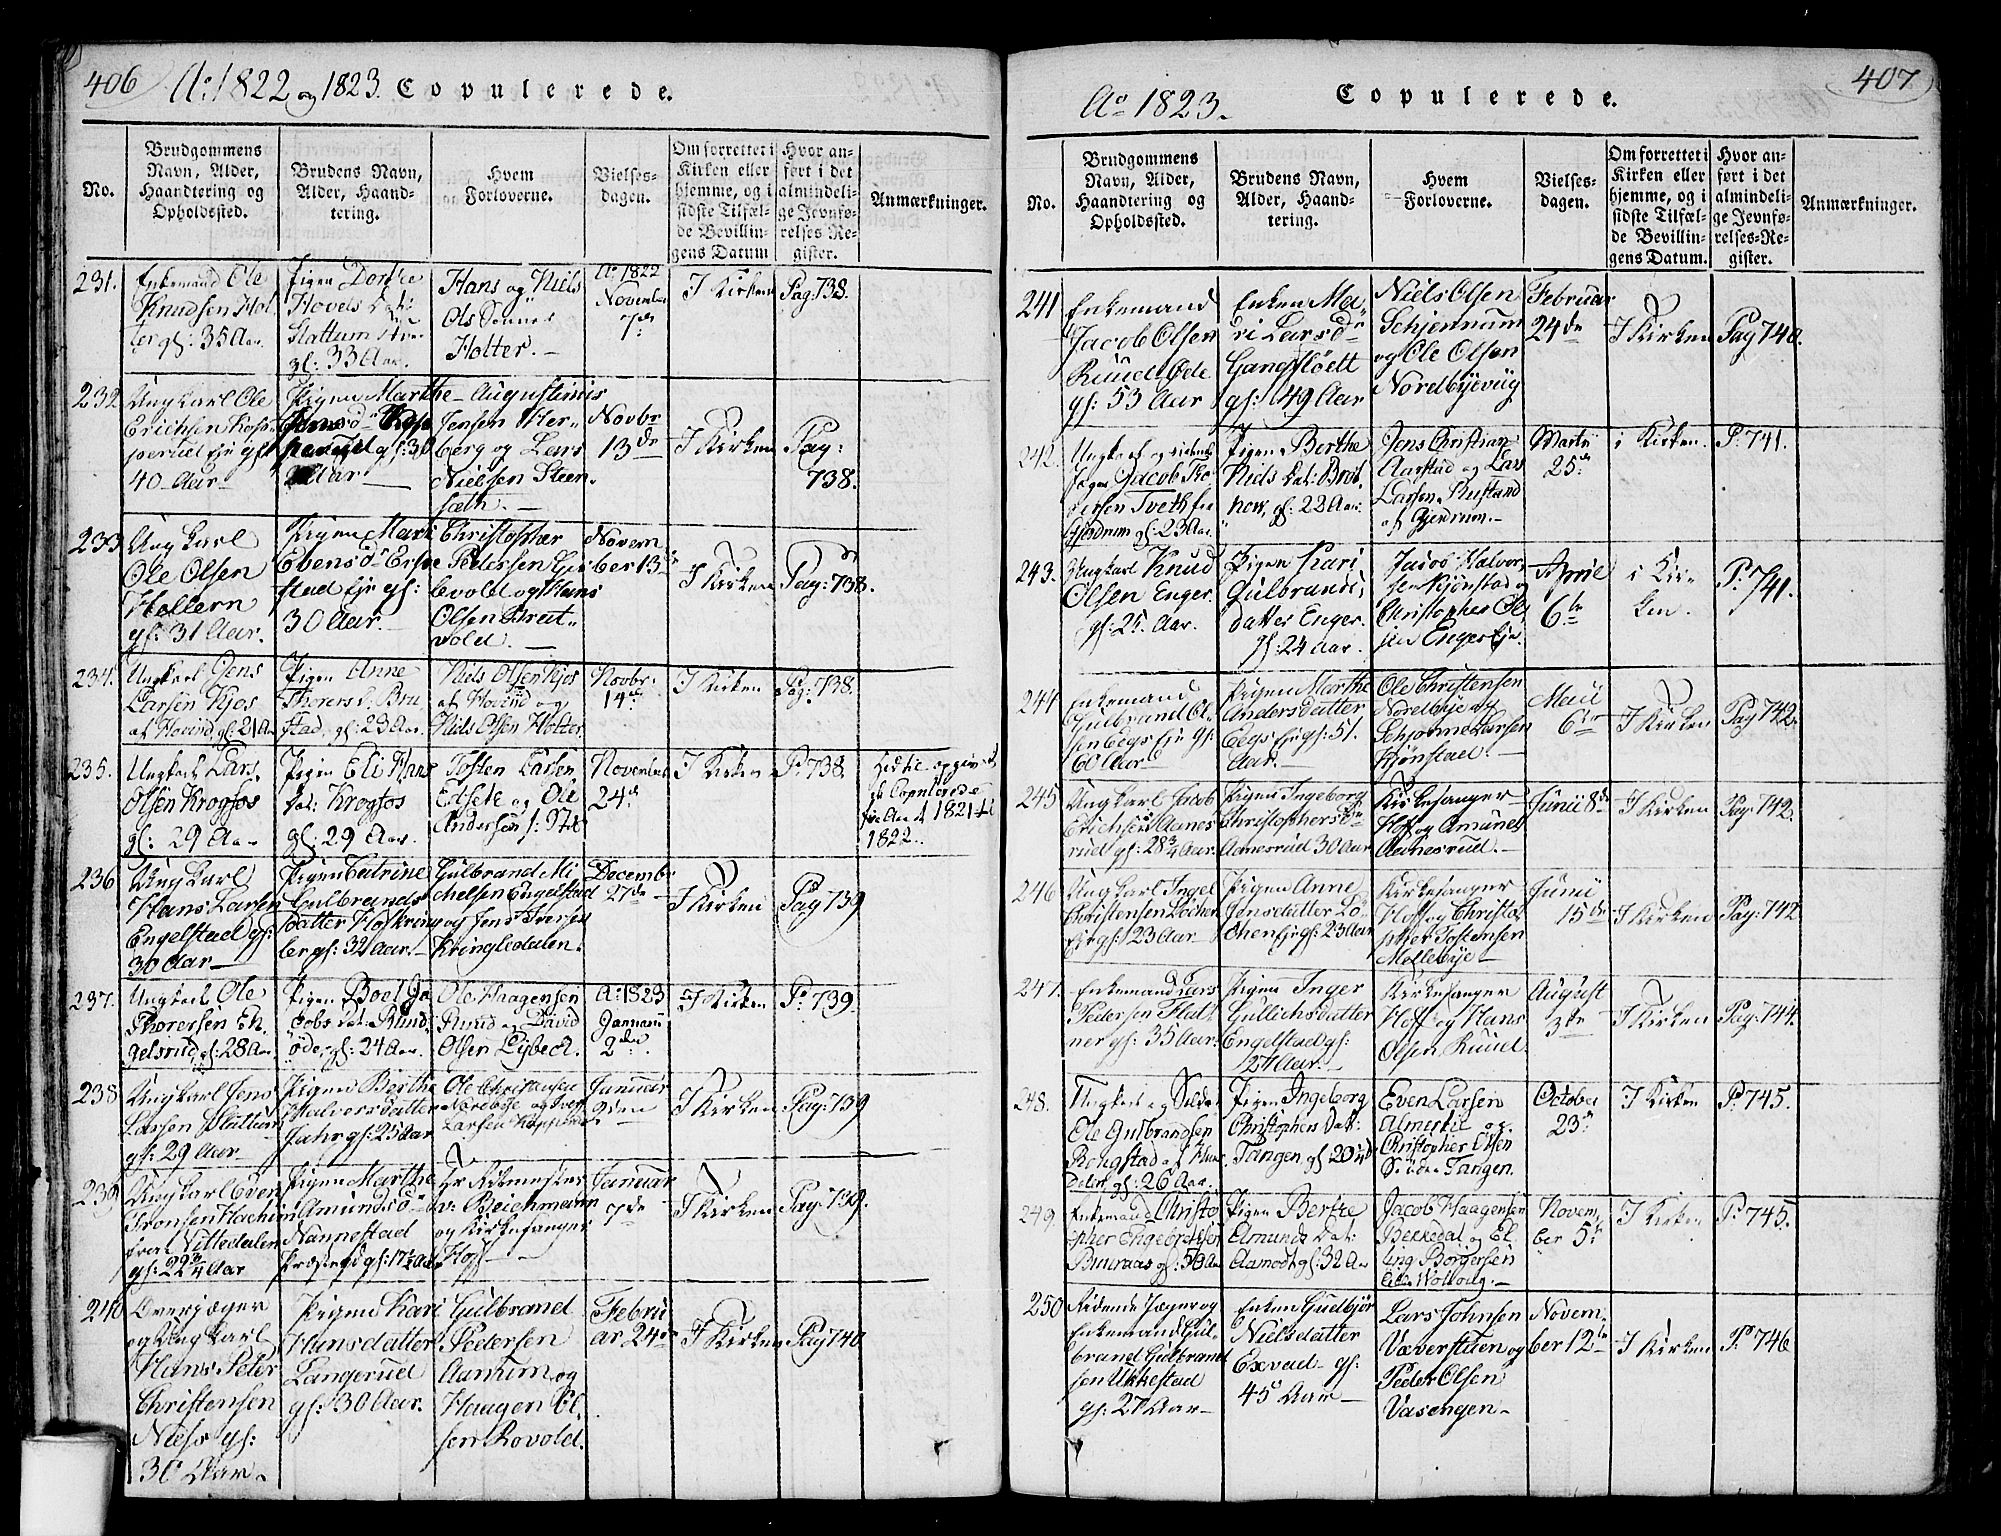 406 Ao 1822 og 1823. Copulerede.
No.
Brudgommens
Navn, Alder,
Haandtering og
Opholdssted.
Brudens Navn,
Alder, Haand-
tering.
Hvem
Forloverne.
Vielses-
dagen.
Om forrettet i
Kirken eller
hjemme, og i
sidste Tilfæl-
de Bevillin-
gens Datum
Hvor an-
ført i det
almindeli-
ge Jevnfø-
relses-Re-
gister.
Anmærkninger.
231.
Enkemand Ole
Knudsen Hol
ter gl: 35 Aar
Pigen Dorthe
Hovels Dat:
Slattum
gl: 33 Aar.
Hans og Niels
Ols Sønner
Holter.
Ao 1822
Novembr
7de
I Kirken
Pag: 738.
232
Ungkarl Ole
Erichsen
40 Aar
Pigen Marthe
gl: 30
Aar
Augustinus
Jensen
berg og Lars
Nielsen Steen
sæth.
Novbr
13de
I Kirken
Pag:
738.
233
Ungkarl
Ole Olsen
Hollern
gl: 31 Aar.
Pigen Mari
Ebensd
stad Eje gl:
30 Aar.
Christopher
Pedersen
vold og Hans
Olsen Breit
vold.
Novem
ber 13de
I Kirken
Pag: 738.
234.
Ungkarl Jens
Larsen Kjos
af Hovind, gl: 21 Aar
Pigen Anne
Thorers D. Bru
stad, gl: 23 Aar
Niels Olsen Kjos
af Hovind og
Niels Olsen Holter
Novbr.
14de
I Kirken
Pag: 738.
235.
Ungkarl Lars
Olsen Krogfos
gl: 29 Aar
Pigen Eli Hans
Dat: Krogfos
gl: 29 Aar
Tosten Larsen
og Ole
Andersen
November
24de
I Kirken
P: 738.
Copulerede
1821 til
1822.
236
Ungkarl
Hans Larsen
Engelstad gl:
30 Aar
Pigen Catrine
Gulbrands
datter
gl: 32 Aar.
Gulbrand Mi
chelsen Engelstad
og Jens Iversen
Kringledalen.
Decembr
27de
I Kirken
Pag 739
237.
Ungkarl Ole
Thorersen En
gelsrud, gl: 28 Aar
Pigen Boel Ja
cobs Dat: Ruud
øde, gl: 24 Aar.
Ole Haagensen
Ruud og David
Olsen Lybeck.
Ao: 1823
Januarii
2den
I Kirken
P: 739.
238
Ungkarl Jens
Larsen Slattum
gl: 29 Aar
Pigen Berthe
Halvorsdatter
Jahr gl: 25 Aar
Ole Christiansen
Nordbye og Iver
Larsen
Januar
2den
I Kirken
Pag: 739
239
Ungkarl Even
Tronsen
fra Nittedalen
gl: 22 3/4 Aar
Pigen Marthe
Amundsd
Nannestad
Præstegd gl: 17 1/2 Aar
Hr Ritmester
v: Beichmann
og Kirkesanger
Hoff
Januar
7de
I Kirken
Pag: 739.
240
Overjæger
og Ungkarl
Hans Peter
Christensen
Næss gl:
30 Aar
Pigen Kari
Hansdatter
Langerud
gl: 30 Aar.
Gulbrand
Pedersen
Aamum og
Haagen El
sen Rovold.
Febru
ar 24de
I Kirken
Pag 740
407
Ao 1823. Copulerede.
No.
Brudgommens
Navn, Alder,
Haandtering og
Opholdssted.
Brudens Navn,
Alder, Haand-
tering.
Hvem
Forloverne.
Vielses-
dagen.
Om forrettet i
Kirken eller
hjemme, og i
sidste Tilfæl-
de Bevillin-
gens Datum.
Hvor an-
ført i det
almindeli-
ge Jevnfø-
relses-Re-
gister.
Anmærkninger.
241
Enkemand
Jacob Olsen
Ruud Øde
gl: 53 Aar
Enken Ma
ri Larsd
gl: 49 Aar
Niels Olsen
Schjennum
og Ole Olsen
Nordbyevug
Februar
24de
I Kirken
Pag 740.
242.
Ungkarl og ridende
Jæger Jacob
Tveth fra
Gjerdrum gl: 23 Aar
Pigen Berthe
Niels Dat:
gl: 22 Aar
Jens Christian
Aarstad og Lars
Larsen Rustand
af Gjerdrum.
Martii
25de
i Kirken
P: 741.
243.
Ungkarl Knud
Olsen Enger
gl: 25 Aar.
Pigen Kari
Gulbrands
datter Enger
gl: 24 Aar.
Jacob Halvor
sen Kjønstad og
Christopher Ol
sen Enger Eje
Aprile
6te
i Kir
ken.
P: 741.
244
Enkemand
Gulbrand Ol
sen Eegs Eje gl:
60 Aar
Pigen Marthe
Andersdatter
Eegs Eje gl: 51.
Aar.
Ole Christensen
Nordbye og
Larsen
Kjønstad.
Maii
6te
I Kirken
Pag 742.
245
Ungkarl Jacob
Erichsen Aanes
rud gl: 28 3/4 Aar.
Pigen Ingeborg
Christophersd
Aanesrud 30 Aar
Kirkesanger
Hoff og Amund
Aanesrud.
Junii 8de
I Kirken
Pag: 742.
246
Ungkarl Ingel
Christensen Løchen
Eje gl: 23 Aar
Pigen Anne
Jonsdatter Lø
chen Eje gl: 23 Aar
Kirkesanger
Hoff og Christo
pher Tostensen
Møllebye
Junii
15de
I Kirken
Pag: 742
247.
Enkemand Lars
Pedersen Flat
ner gl: 35 Aar.
Pigen Inger
Gullichsdatter
Engelstad gl:
24 Aar.
Kirkesanger
Hoff og Hans
Olsen Ruud
August
3de
I Kirken
Pag: 744.
248.
Ungkarl og Soldat
Ole Gulbrandsen
Rongstad
gl: 26 Aar.
Pigen Ingeborg
Christophers Dat:
Tangen gl 20
Even Larsen
Almerkie og
Christopher Olsen
Søndre Tangen.
October
23de
I Kirken
P: 745.
249.
Enkemand Christo
pher Engebretsen
Buuraas gl: 50 Aar
Pigen Berthe
Amunds Dat:
Aamodt gl: 32 Aar
Jacob Haagensen
Bekkedal og El
ling Børgersen
Novem
ber 5te
I Kirken
P: 745.
250
Ridende Jæger og
Enkemand Gul
brand Gulbrand
sen Ukkestad
gl: 27 Aar
Enken Gudbjør
Nielsdatter
Exvad gl:
45 Aar
Lars Johnsen
Væverstuen og
Peder Olsen
Vasengen
Novem
ber 12te
I Kirken
P: 746